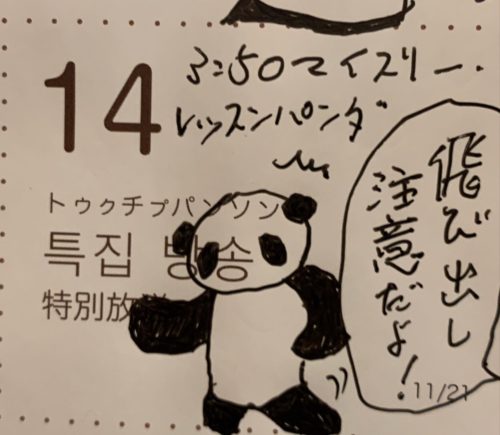 14
3:50マイスリー..
レッスンパンダ
トゥクチプパンソン
특집 방송
特別放送
飛び出し
注意だよ!
11/21